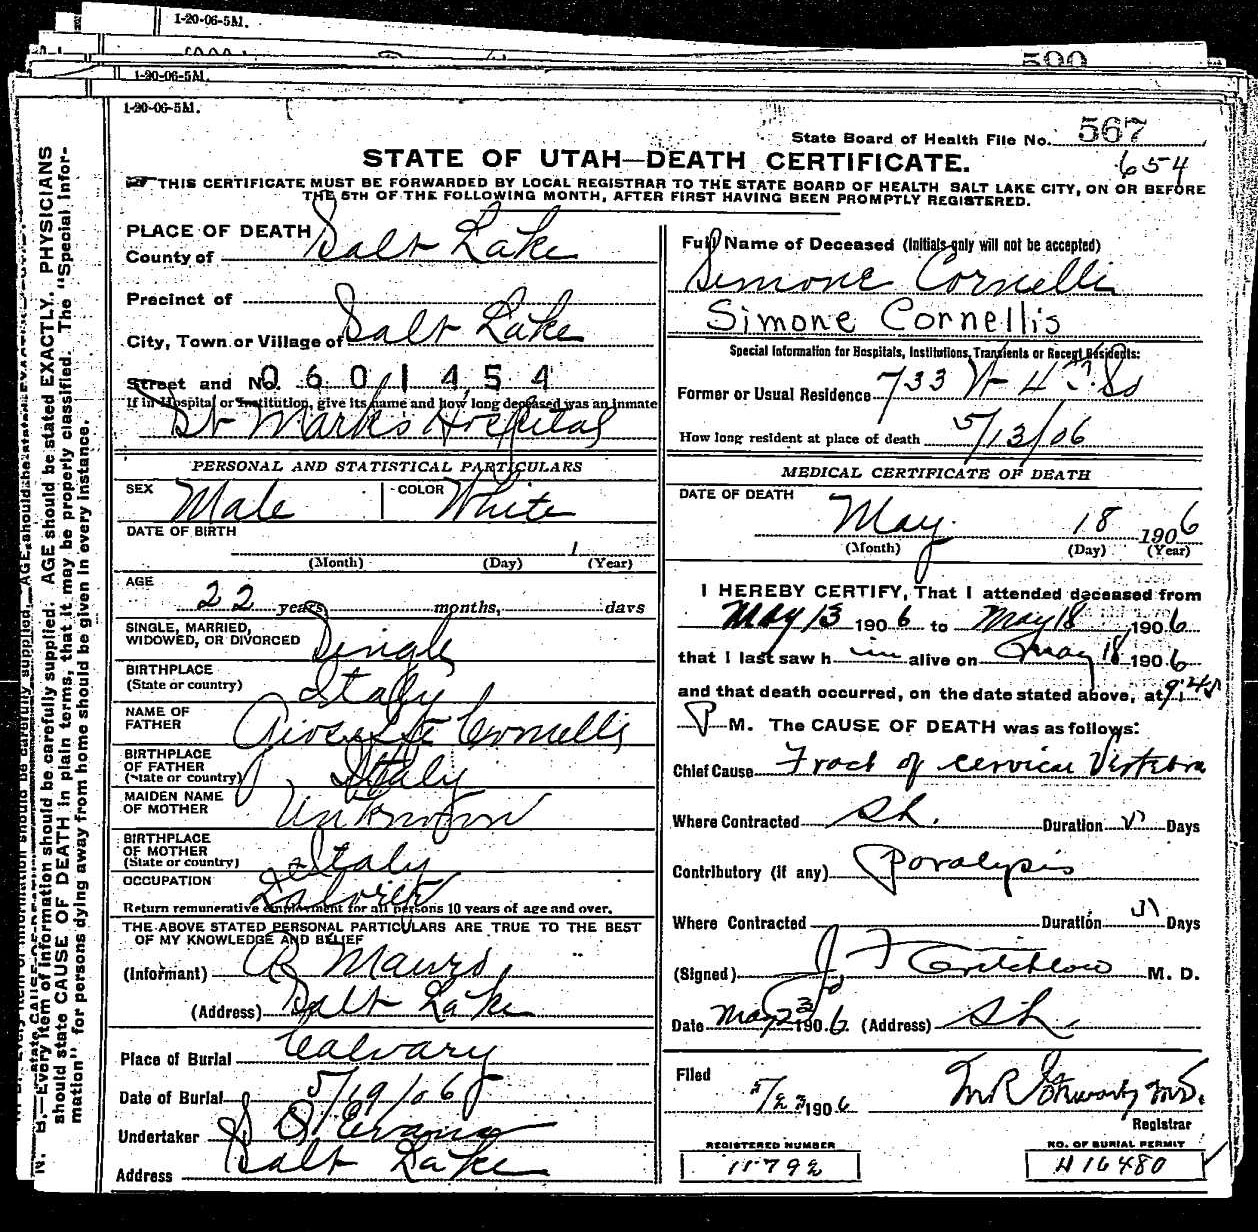 1-20-06-5M.
590
1-20-06-5M.
1-20-06-5M.
State Board of Health File No. 567
654
STATE OF UTAH—DEATH CERTIFICATE.
THIS CERTIFICATE MUST BE FORWARDED BY LOCAL REGISTRAR TO THE STATE BOARD OF HEALTH SALT LAKE CITY, ON OR BEFORE
THE 5TH OF THE FOLLOWING MONTH, AFTER FIRST HAVING BEEN PROMPTLY REGISTERED.
PLACE OF DEATH
County of Salt Lake
Precinct of
City, Town or Village of Salt Lake
Street and No. 0601454
If in Hospital or Institution, give its name and how long deceased was an inmate
St Marks Hospital
PERSONAL AND STATISTICAL PARTICULARS
SEX Male COLOR White
DATE OF BIRTH
1
(Month) (Day) (Year)
AGE
22 years, months, days
SINGLE, MARRIED,
WIDOWED, OR DIVORCED Single
BIRTHPLACE
(State or country) Italy
NAME OF
FATHER Cornellis
BIRTHPLACE
OF FATHER
(State or country) Italy
MAIDEN NAME
OF MOTHER Unknown
BIRTHPLACE
OF MOTHER
(State or country) Italy
OCCUPATION Laborer
Return remunerative employment for all persons 10 years of age and over.
THE ABOVE STATED PERSONAL PARTICULARS ARE TRUE TO THE BEST
OF MY KNOWLEDGE AND BELIEF
(Informant)
(Address) Salt Lake
Place of Burial Calvary
Date of Burial 5/19/06
Undertaker S D Evans
Address Salt Lake
Full Name of Deceased (Initials only will not be accepted)
Simone Cornelli
Simone Cornellis
Special Information for Hospitals, Institutions, Transients or Recent Residents:
Former or Usual Residence 733 W 4th So
How long resident at place of death 5/13/06
MEDICAL CERTIFICATE OF DEATH
DATE OF DEATH
May 18 1906
(Month) (Day) (Year)
I HEREBY CERTIFY, That I attended deceased from
May 13 1906 to May 18 1906
that I last saw him alive on May 18 1906
and that death occurred, on the date stated above, at 9:45
P M. The CAUSE OF DEATH was as follows:
Chief Cause Fract of cervical Vertebra
Where Contracted SL. Duration 5 Days
Contributory (if any) Paralysis
Where Contracted Duration 5 Days
(Signed) J F Critchlow M. D.
Date May 23 1906. (Address) SL.
Filed 5/23 1906 M R Stewart MD.
Registrar
REGISTERED NUMBER
11792
NO. OF BURIAL PERMIT
H16480
N. B.—Every item of information should be carefully supplied. AGE should be stated EXACTLY. PHYSICIANS
should state CAUSE OF DEATH in plain terms, that it may be properly classified. The "Special Infor-
mation" for persons dying away from home should be given in every instance.